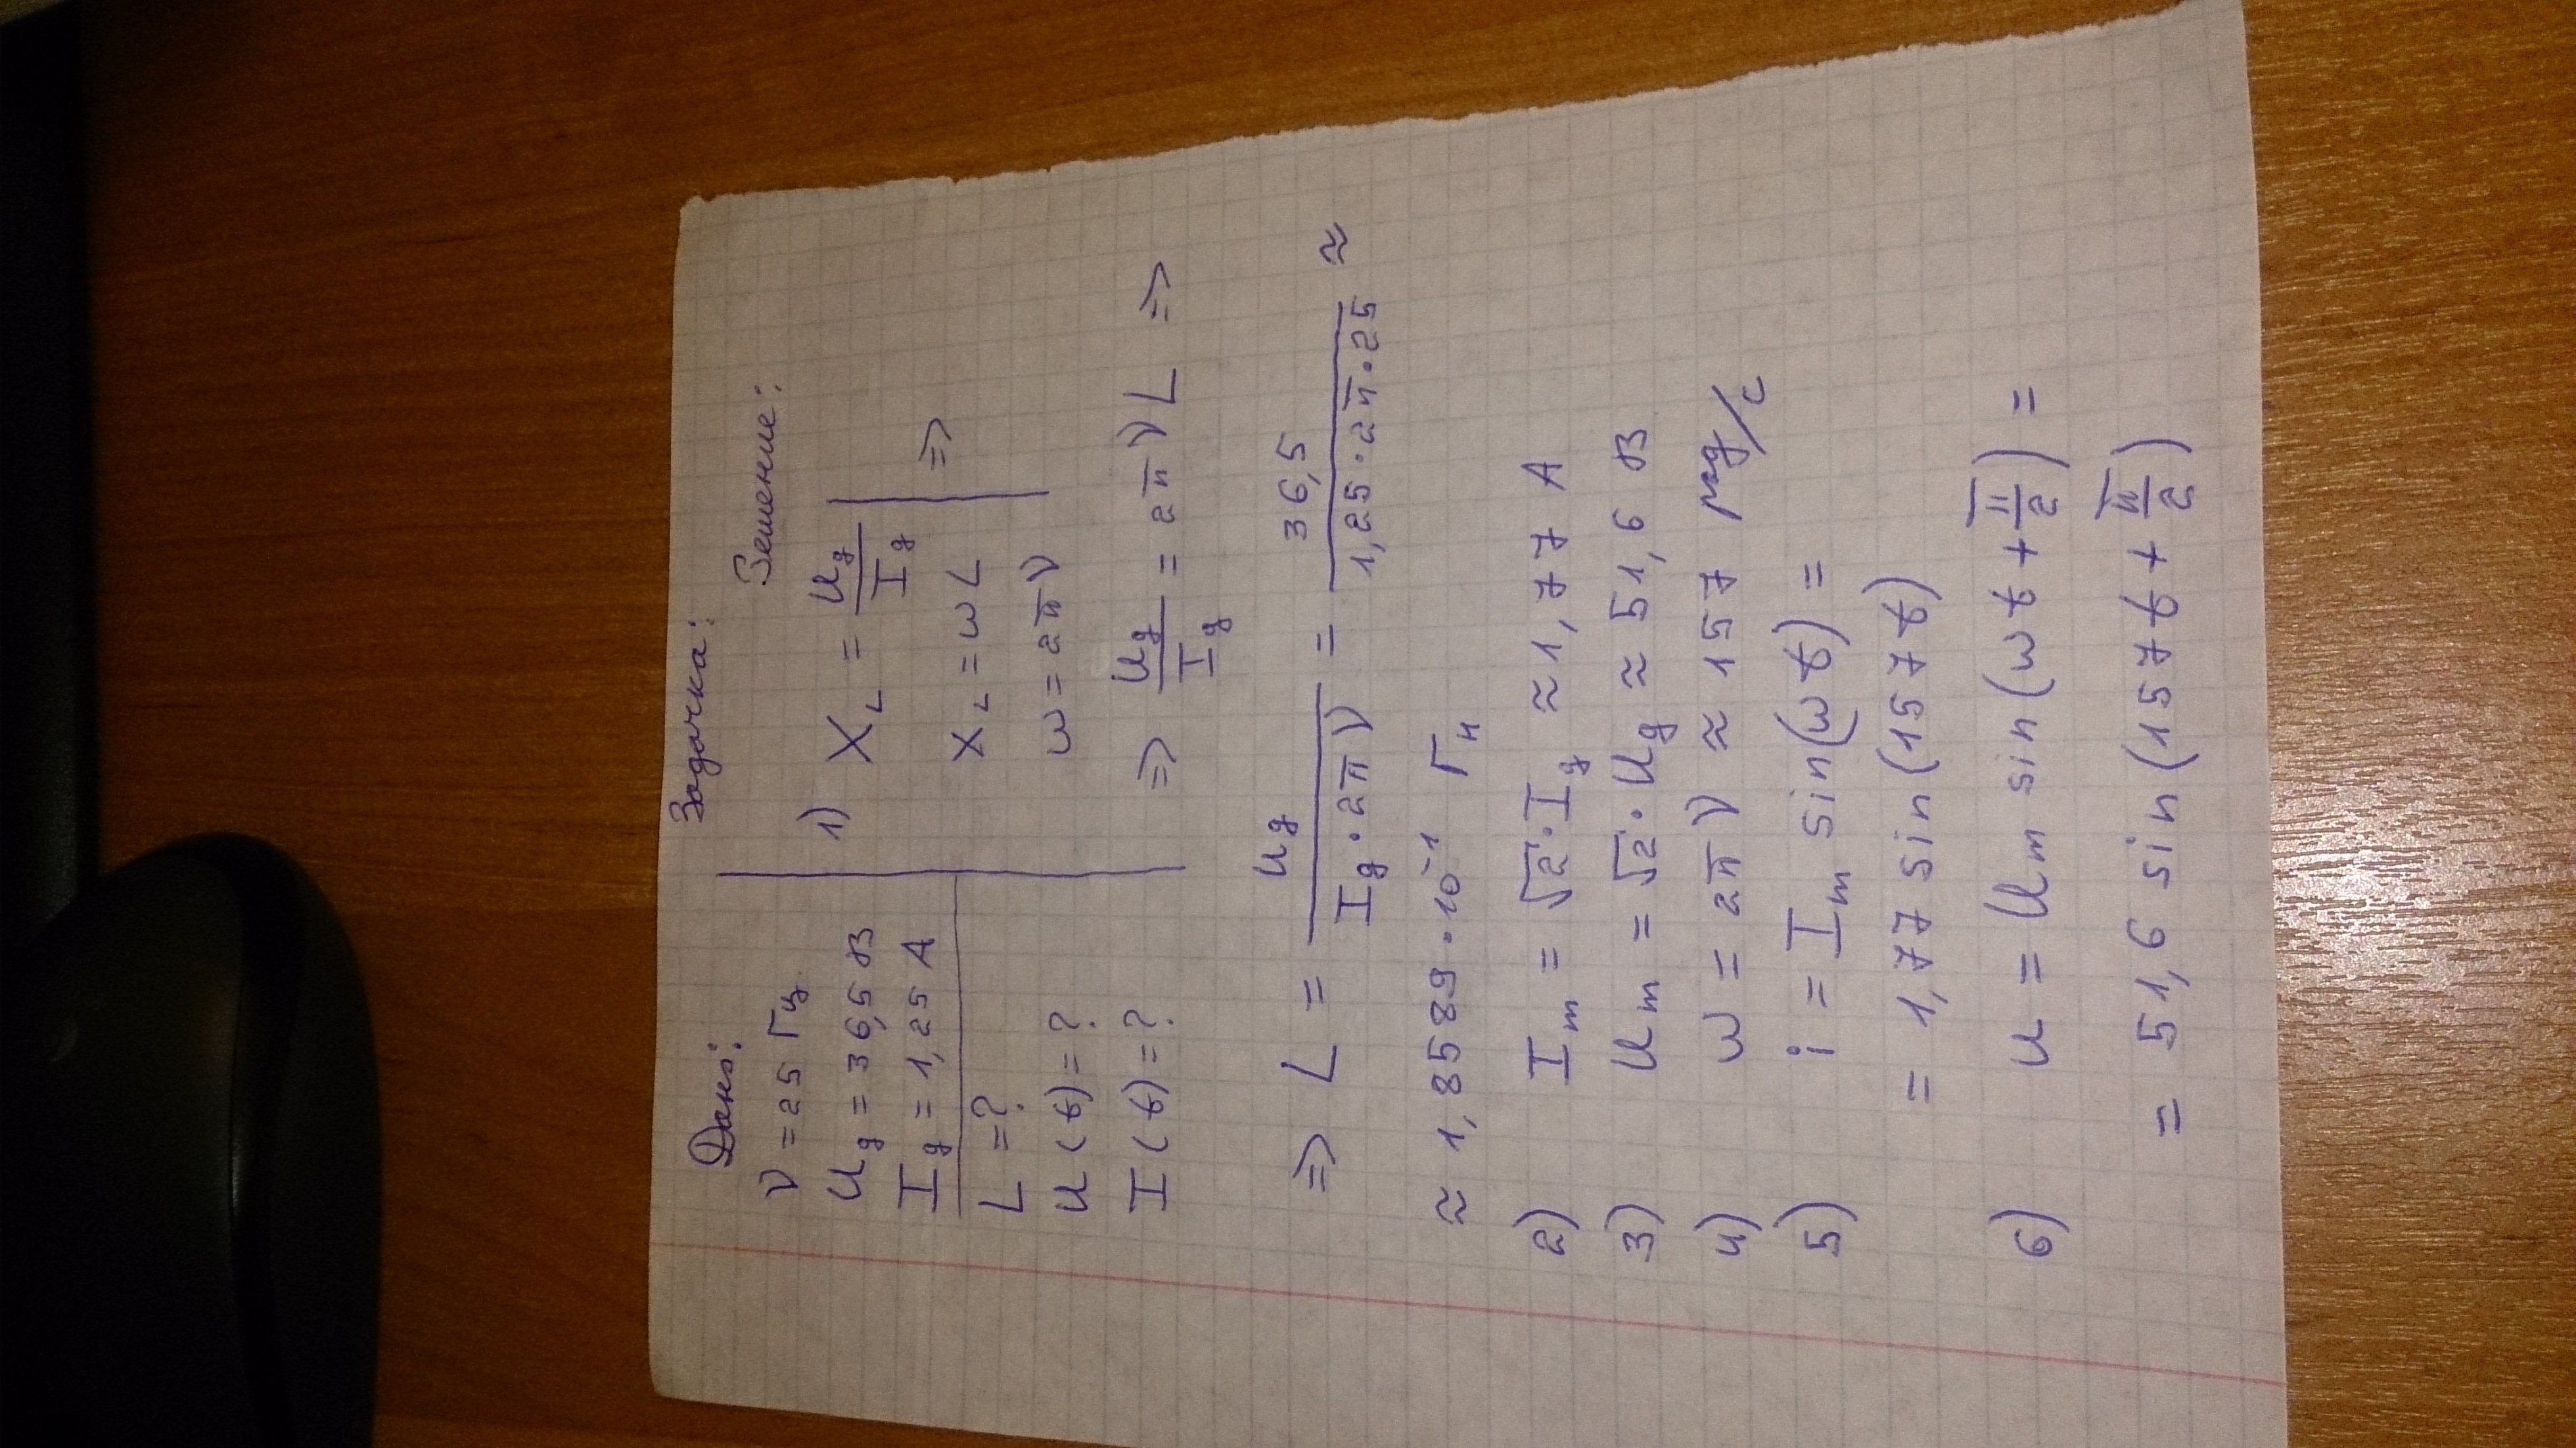 Задачка:
Дано:
ν = 25 Гц
Uд = 36,5 В
Iд = 1,25 А
L = ?
U(t) = ?
I(t) = ?
Решение:
1) X_L = Uд/Iд
X_L = ωL
ω = 2πν
=>
=> Uд/Iд = 2πνL =>
=> L = Uд/(Iд · 2πν) = 36,5/(1,25 · 2π · 25) ≈
≈ 1,8589 · 10⁻¹ Гн
2) Im = √2 · Iд ≈ 1,77 А
3) Um = √2 · Uд ≈ 51,6 В
4) ω = 2πν ≈ 157 рад/с
5) i = Im sin(ωt) =
= 1,77 sin(157t)
6) u = Um sin(ωt + π/2) =
= 51,6 sin(157t + π/2)